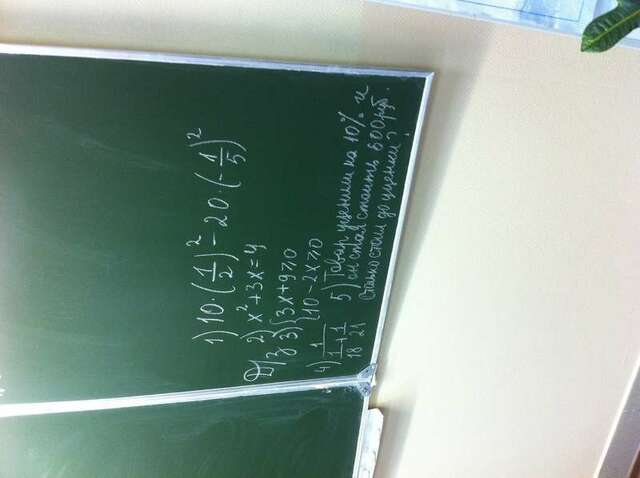 1) 10·(1/2)² - 20·(-1/5)²
Д/з 2) x² + 3x = 4
3) { 3x + 9 ≥ 0
10 - 2x ≥ 0
4) 1/(1/18 + 1/21)
5) Товар уценили на 10% и
он стал стоить 600 руб.
Сколько стоил до уценки?